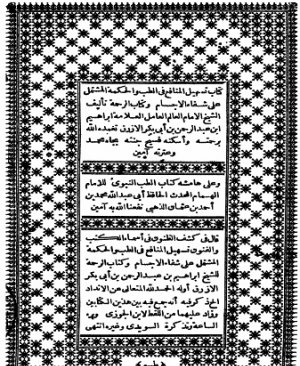 كتاب تسهيل المنافع في الطب والحكمة المشتمل
على شفاء الاجسام وكتاب الرحمة تأليف
الشيخ الامام العالم العامل العلامة ابراهيم
ابن عبد الرحمن بن أبي بكر الازرق تغمده الله
برحمته وأسكنه فسيح جنته بجاه محمد
وعترته آمين
وعلى هامشه كتاب الطب النبوي للامام
الهمام المحدث الحافظ أبي عبد الله محمد بن
أحمد بن عثمان الذهبي نفعنا الله به آمين
قال في كشف الظنون في أسماء الكتب
والفنون تسهيل المنافع في الطب والحكمة
المشتمل على شفاء الاجسام وكتاب الرحمة
للشيخ ابراهيم بن عبد الرحمن بن أبي بكر
الازرق أوله الحمد لله المتعالي عن الانداد
الخ ذكر فيه أنه جمع فيه بين هذين الكتابين
وزاد عليهما من اللقط لابن الجوزي وبره
الساعة وتذكرة السويدي وغيره انتهى